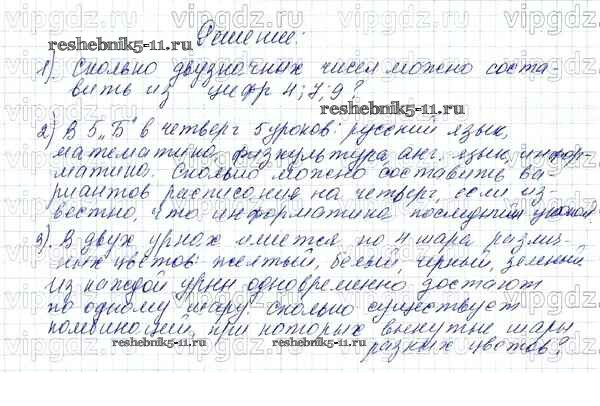 Решение:
1). Сколько двузначных чисел можно соста-
вить из цифр 4; 7; 9?
2) В 5 „Б" в четверг 5 уроков: русский язык,
математика, физкультура, анг. язык, инфор-
матика. Сколько можно составить ва-
риантов расписания на четверг, если из-
вестно, что информатика последний урок?
3). В двух урнах имеется по 4 шара различ-
ных цветов: желтый, белый, черный, зеленый
из каждой урны одновременно достают
по одному шару. Сколько существует
комбинаций, при которых вынутые шары
разных цветов?
vipgdz.ru
reshebnik5-11.ru
reshebnik5-11.ru
reshebnik5-11.ru